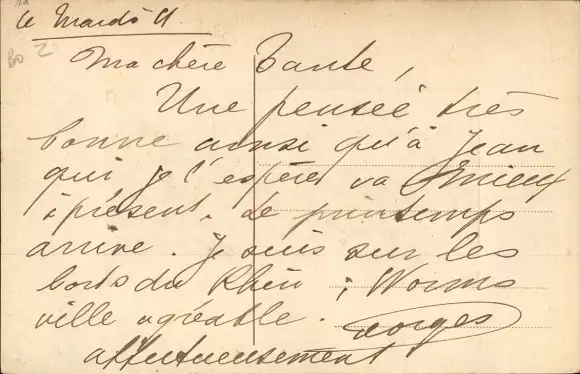 Le Mardi 11
Ma chère Tante,
Une pensée très
bonne ainsi qu'à Jean
qui je l'espère va mieux
à présent. Le printemps
arrive. Je suis sur les
bords du Rhin ; Worms
ville agréable. Georges
affectueusement